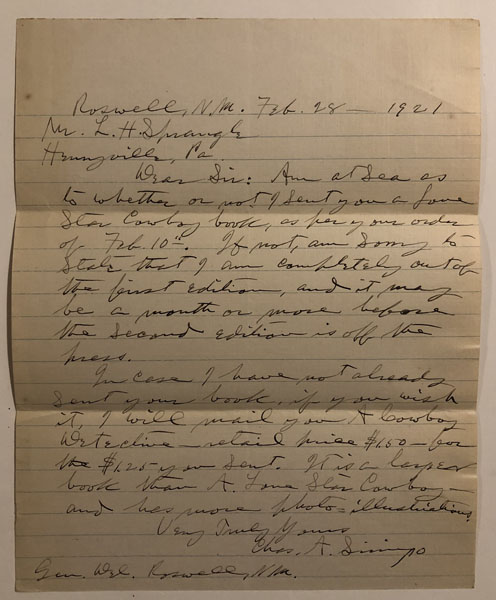 Roswell, N.M. Feb. 28 — 1921
Mr. L. H. Sprangle
Hennyville, Pa.
Dear Sir: Am at Sea as
to whether or not I sent you a Lone
Star Cowboy book, as per your order
of Feb. 10th. If not, am sorry to
State that I am completely out of
the first edition, and it may
be a month or more before
the second edition is off the
press.
In case I have not already
sent your book, if you wish
it, I will mail you A Cowboy
Detective — retail price $1.50 — for
the $1.25 you sent. It is a larger
book than A. Lone Star Cowboy —
and has more photo-illustrations.
Very Truly Yours
Chas. A. Siringo
Gen. Del. Roswell, N.M.